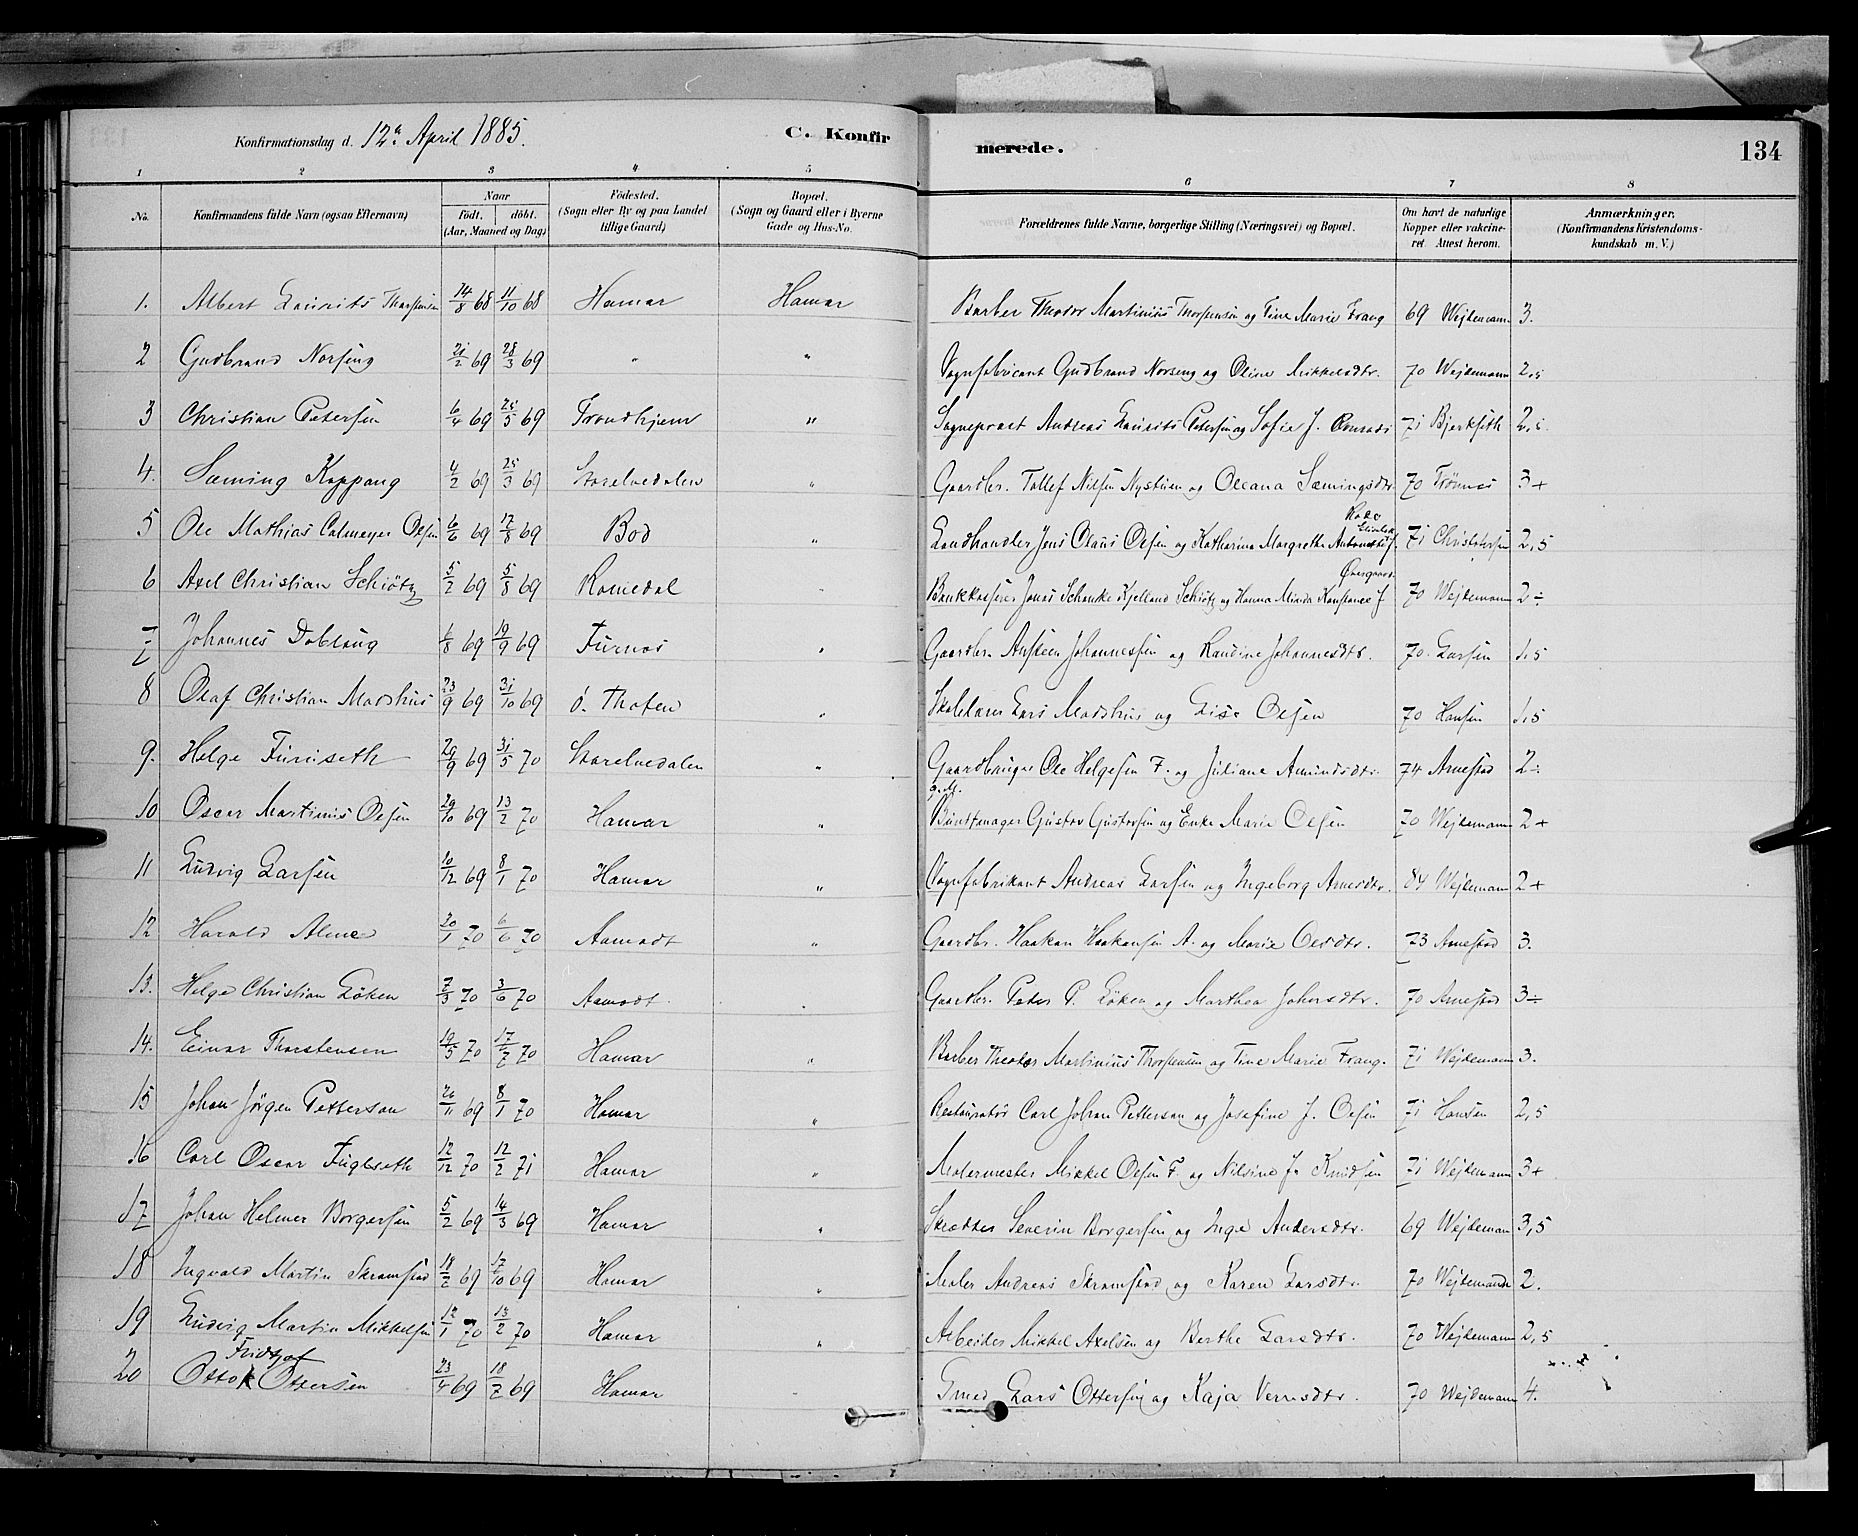 Konfirmationsdag d. 12te April 1885. C. Konfir merede. 134
1 2 3 4 5 6 7 8
No. Konfirmandens fulde Navn (ogsaa Efternavn) Naar født. døbt. (Aar, Maaned og Dag) Födested. (Sogn eller By og paa Landet tillige Gaard) Bopæl. (Sogn og Gaard eller i Byerne Gade og Hus-No. Forældrenes fulde Navne, borgerlige Stilling (Næringsvei) og Bopæl. Om havt de naturlige Kopper eller vakcineret. Attest herom. Anmærkninger. (Konfirmandens Kristendomskundskab m. V.)
1. Albert Laurits Thorstensen 14/8 68 11/10 68 Hamar Hamar Barber Theodor Martinius Thorstensen og Tine Marie Frang 69 Wejdemann 3.
2 Gudbrand Norseng 21/2 69 28/3 69 " " Vognfabricant Gudbrand Norseng og Oline Mikkelsdtr. 70 Wejdemann 2,5
3 Christian Petersen 6/4 69 25/5 69 Trondhjem " Sogneprest Andreas Laurits Petersen og Sofie J. 71 2,5
4. Sæming Koppang 4/2 69 25/3 69 Storelvedalen " Gaardbr. Tollef Nilsen Nystuen og Oleana Sæmingsdtr. 70 Trönnes 3+
5 Ole Mathias Calmeyer Olsen 6/6 69 12/8 69 Bod " Landhandler Jens Olaus Olsen og Katharina Margrethe 71 Christophersen 2,5
6 Axel Christian Schiötz 5/2 69 5/8 69 Romedal " Bankkasserer Jonas Schanke Kjelland Schiötz og Hanna Minda Konstance J Övergaard 70 Wejdemann 2÷
7 Johannes Doblaug 6/8 69 19/9 69 Furnes " Gaardbr. Austeen Johannessen og Randine Johannesdtr. 70. Larsen 1,5
8 Olaf Christian Madshus 23/9 69 31/10 69 Ö. Thoten " Skolelærer Lars Madshus og Lise Olsen 70 Hansen 1,5
9. Helge Furuseth 29/9 69 31/5 70 Storelvedalen " Gaardbruger Ole Helgesen F. og Juliane Amundsdtr. 74 Arnestad 2÷
10 Oscar Martinius Olsen 29/10 69 13/2 70 Hamar " g.M. Buntmager Gustav Gustavsen og Enke Marie Olsen 70 Wejdemann 2+
11 Ludvig Larsen 10/12 69 8/1 70 Hamar " Vognfabrikant Andreas Larsen og Ingeborg Arnesdtr. 84 Wejdemann 2+
12 Harald Alme 20/1 70 6/6 70 Aamodt " Gaardbr. Haakon Haakonsen A. og Marie Olsdtr. 73 Arnestad 3.
13. Helge Christian Löken 7/3 70 3/6 70 Aamodt " Gaardbr. Peder P. Löken og Marthea Johnsdtr. 70 Arnestad 3÷
14. Einar Thorstensen 19/5 70 17/7 70 Hamar " Barber Theodor Martinius Thorstensen og Tine Marie Frang. 71 Wejdemann 3.
15 Johan Jörgen Petterson 26/11 69 8/1 70 Hamar " Restauratör Carl Johan Petterson og Josefine J. Olsen 71 Hansen 2,5
16 Carl Oscar Fugleseth 12/12 70 12/2 71 Hamar " Malermester Mikkel Olsen F. og Nilsine J. Knudsen 71 Wejdemann 3+
17 Johan Helmer Borgersen 5/2 69 14/3 69 Hamar " Skrædder Severin Borgersen og Inge Andersdtr. 69 Wejdemann 3,5
18 Ingvald Martin Skramstad 18/7 69 17/10 69 Hamar " Maler Andreas Skramstad og Karen Larsdtr. 70 Wejdemann 2.
19 Ludvig Martin Mikkelsen 12/1 70 13/2 70 Hamar " Arbeider Mikkel Axelsen og Berthe Larsdtr. 70 Wejdemann 2,5
20 Otto Fridtjof Ottersen 23/4 69 18/7 69 Hamar " Smed Lars Ottersen og Kaja Vernsdtr. 70 Wejdemann 4.